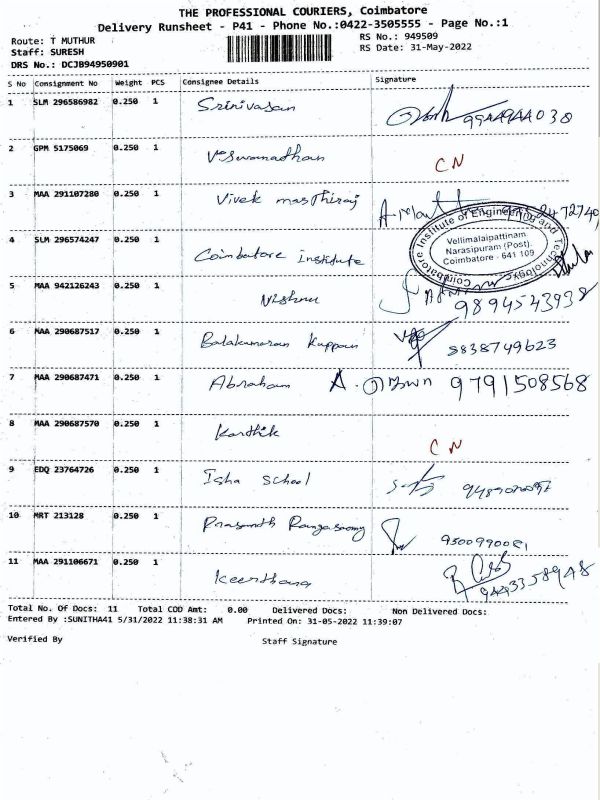 THE PROFESSIONAL COURIERS, Coimbatore
Delivery Runsheet - P41 - Phone No.:0422-3505555 - Page No.:1
Route: T MUTHUR RS No.: 949509
Staff: SURESH RS Date: 31-May-2022
DRS No.: DCJB94950901
S No Consignment No Weight PCS Consignee Details Signature
1 SLM 296586982 0.250 1 Srinivasan 9944944038
2 GPM 5175069 0.250 1 Viswanadhan CN
3 MAA 291107280 0.250 1 Vivek
4 SLM 296574247 0.250 1 Coimbatore institute
Coimbatore Institute of Engineering and Technology
Vellimalaipattinam,
Narasipuram (Post),
Coimbatore - 641 109
5 MAA 942126243 0.250 1 Vishnu 9894543938
6 MAA 290687517 0.250 1 Balakumaran Kuppan 8838749623
7 MAA 290687471 0.250 1 Abraham 9791508568
8 MAA 290687570 0.250 1 Karthik CN
9 EDQ 23764726 0.250 1 Isha School
10 MRT 213128 0.250 1 Prasanth Rangasamy
11 MAA 291106671 0.250 1 Keerthana 9443358948
Total No. Of Docs: 11 Total COD Amt: 0.00 Delivered Docs: Non Delivered Docs:
Entered By :SUNITHA41 5/31/2022 11:38:31 AM Printed On: 31-05-2022 11:39:07
Verified By Staff Signature